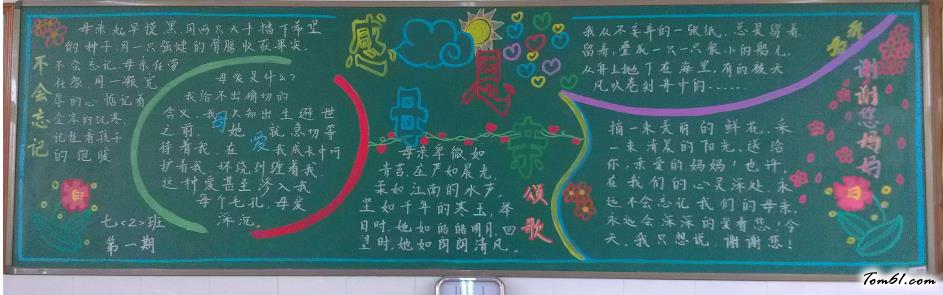 不会忘记
母亲起早摸黑,用两只大手播下希望
的种子,用一只强健的臂膀收获果实,
不会忘记,母亲任劳
任怨,用一颗宽
厚的心惦记着
全家的饥寒,
记挂着孩子
的饱暖
七<2>班
第一期
母爱
母爱是什么?
我给不出确切的
含义,我只知出生避世
之前,她就急切等
待着我,在我成长中呵
护着我,环绕纠缠着我,
这种爱甚至渗入我
每个毛孔,母爱
深沉。
感恩母亲
颂歌
母亲卑微如
青苔,庄严如晨光,
柔如江南的水声,
坚如千年的寒玉,举
目时,她如皓皓明月,回
望时,她如朗朗清风。
我从不丢弃的一张纸,总是留着
留着,叠成一只一只很小的船儿,
从舟上抛下在海里,有的被天
风吹卷到舟中的......
谢谢您妈妈
摘一束美丽的鲜花,采
一束清晨的阳光,送给
你,亲爱的妈妈!也许,
在我们的心灵深处,永
远不会忘记我们的母亲,
永远会深深的爱着您,今
天,我只想说,谢谢您!
Tom61.com